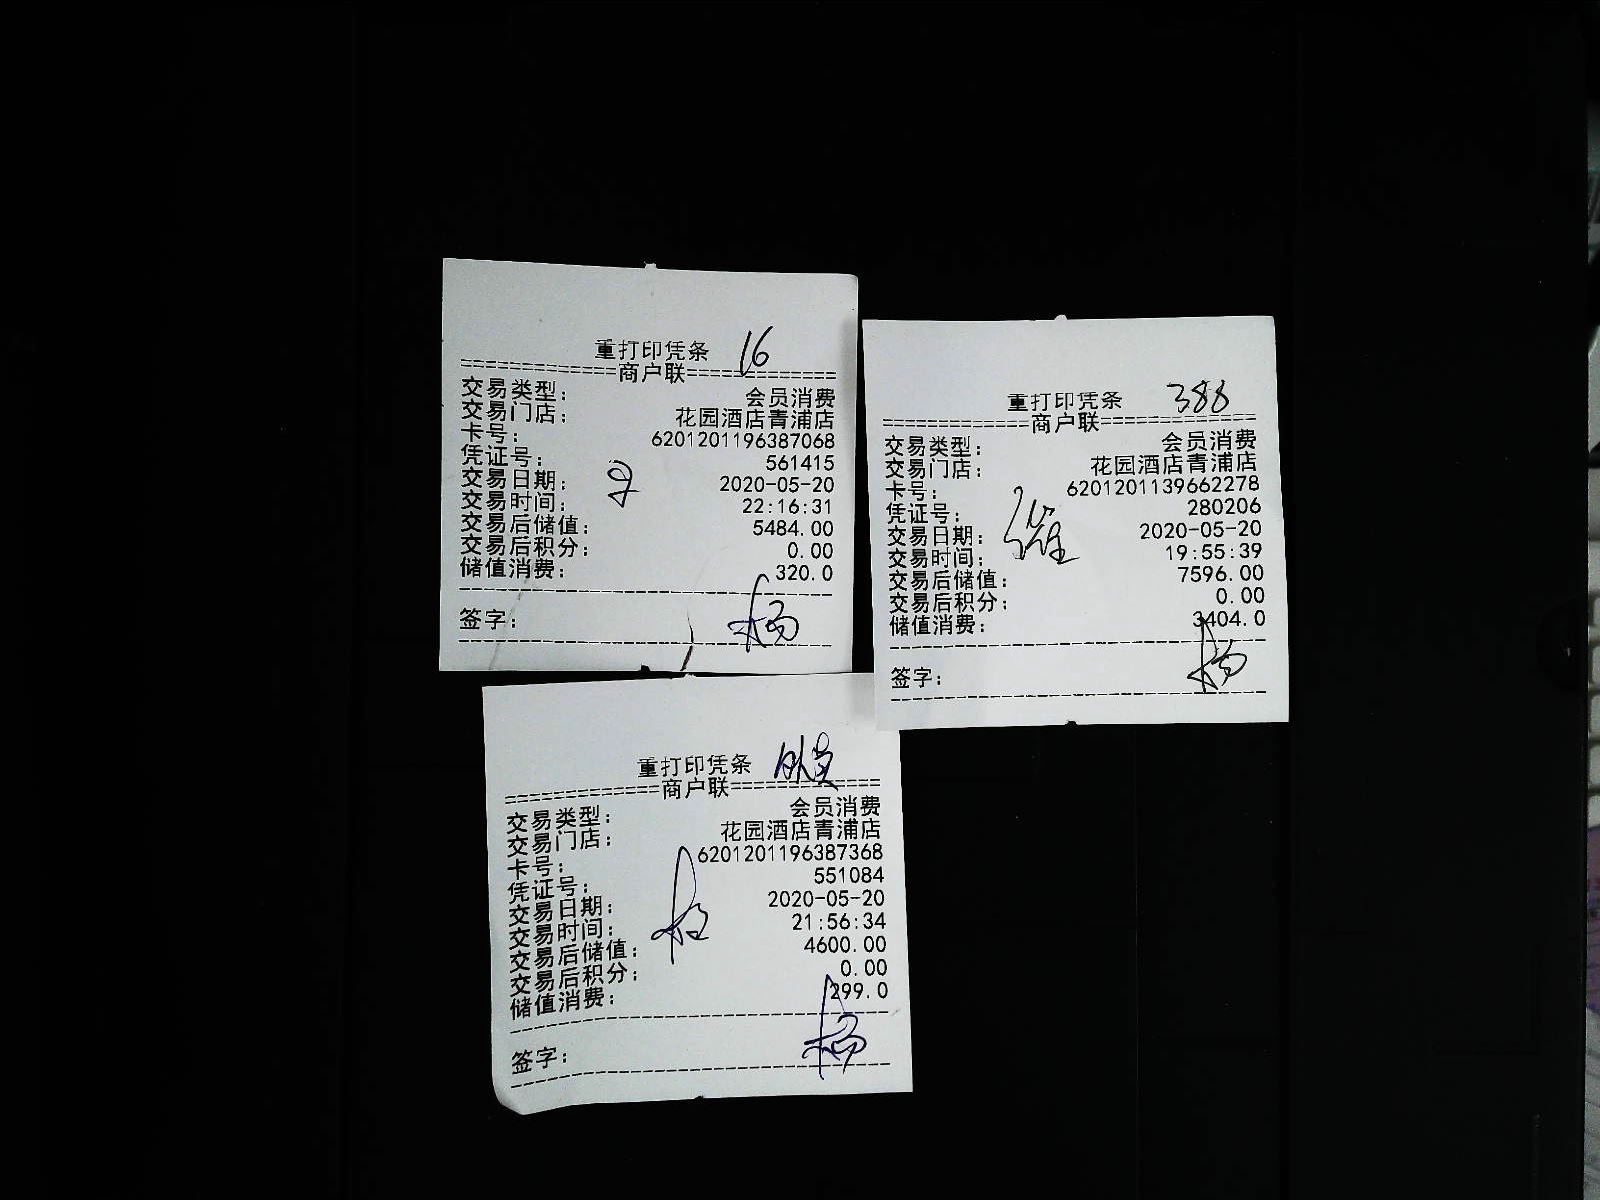 重打印凭条 16
============商户联============
交易类型: 会员消费
交易门店: 花园酒店青浦店
卡号: 6201201196387068
凭证号: 561415
交易日期: 2020-05-20
交易时间: 22:16:31
交易后储值: 5484.00
交易后积分: 0.00
储值消费: 320.0
签字: 杨
重打印凭条 388
============商户联============
交易类型: 会员消费
交易门店: 花园酒店青浦店
卡号: 6201201139662278
凭证号: 280206
交易日期: 2020-05-20
交易时间: 19:55:39
交易后储值: 7596.00
交易后积分: 0.00
储值消费: 3404.0
签字: 杨
重打印凭条
============商户联============
交易类型: 会员消费
交易门店: 花园酒店青浦店
卡号: 6201201196387368
凭证号: 551084
交易日期: 2020-05-20
交易时间: 21:56:34
交易后储值: 4600.00
交易后积分: 0.00
储值消费: 299.0
签字: 杨